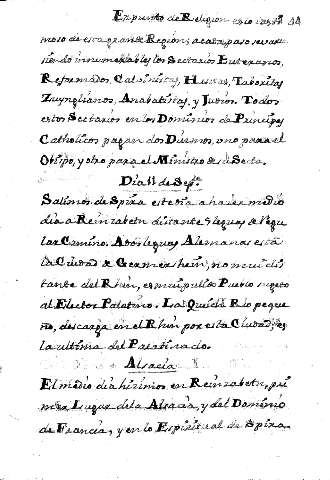 En punto de Religion es lo mas
moso de esta grande Region; a cada paso se van
siendo innumerables los Sectarios Luteranos,
Reformados, Calvinistas, Husitas, Taboritas
Zuynglianos, Anabatistas, y Judios. Todos
estos Sectarios en los Dominios de Principes
Catholicos pagan dos Diesmos, uno para el
Obispo, y otro para el Ministro de su Secta.
Dia 11 de Sepre.
Salimos de Spira este dia a hacer medio
dia a Reinzabetn distante 5 leguas de Regu
lar Camino. A dos leguas Alemanas está
la Ciudad de Germershein; no mui dis
tante del Rhin, es mui pulido Pueblo sugeto
al Elector Palatino. La Queich Rio peque
ño, descarga en el Rhin por esta Ciudad, es
la ultima del Palatinado.
Alsacia
El medio dia hizimos en Reinzabetn, pri
mer Lugar de la Alsacia, y del Dominio
de Francia, y en lo Espiritual de Spira.